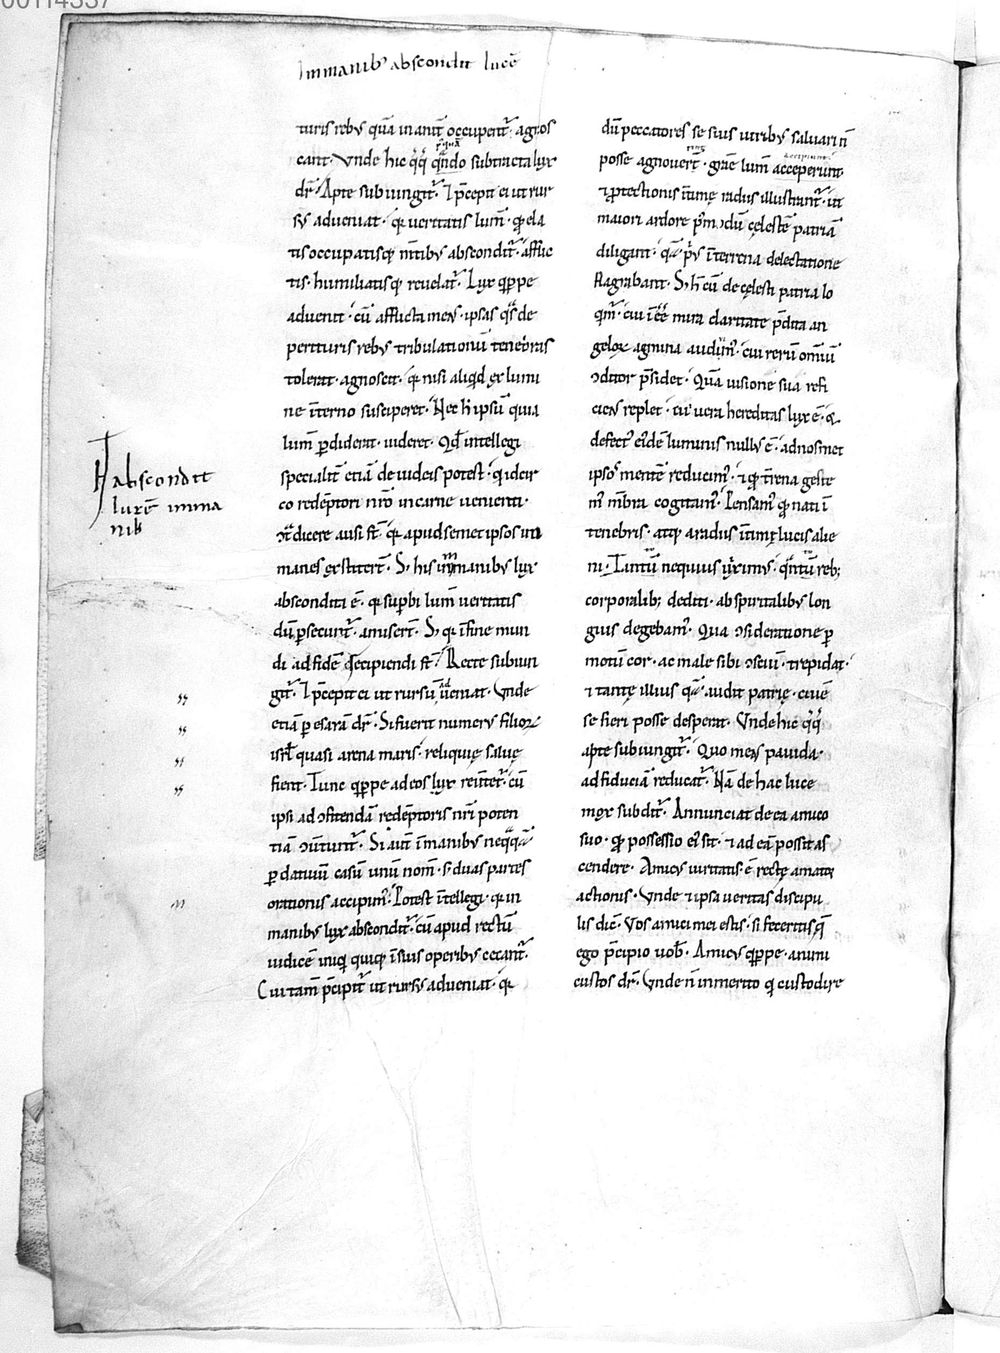 00114337
Immanib' abscondit lucē
turis reb' quā inanit̄ occupent̄· agnos
cant· Unde hic q̄q̄ subtracta lux
dr̄· Apte subiungit̄· ⁊ p̄cepit ei ut rur
s' adveniat· q̄ veritatis lum̄· q̄ ela
tis occupatisq; m̄tib' abscondit̄· afflic
tis· humiliatisq; revelat̄· Lux q̄ppe
advenit· cū afflicta mens· ipsas q̄s de
perituris reb' tribulationū tenebras
tolerat· agnoscit· q̄ nisi aliqd ex lumi
ne īterno susciperet· Nec h̄ ipsū quia
lum̄ pdiderat· videret· Qd̄ intellegi
specialit̄ etiā de iudeis potest· q idcir
co redēptori nr̄o incarne venienti·
ɔt̄dicere ausi st̄· q̄ apud semet ipsos in
manes exstitert̄· S; his immanib' lux
abscondita ē· q̄ supbi lum̄ veritatis
dū psecunt̄· amisert̄· S; q̄ īfine mun
di ad fidē recipiendi st̄· Recte subiun
git̄· ⁊ p̄cepit ei ut rursū veniat· Unde
etiā p esaiā dr̄· Si fuerit numer' filioꝝ
isrl̄ quasi arena maris· reliquię salvę
fient· Tunc q̄ppe ad eos lux revertet̄· cū
ipsi ad ɔfitendā redēptoris nr̄i poten
tiā ɔvertunt̄· Si aut̄ ī manib'
p dativū casū unū nom̄· n̄ duas partes
orationis accipim'· Potest īntellegi· q in
manib' lux abscondit̄· cū apud rectū
iudicē iniq quiq; īsuis operib' cecant̄·
Cui tam̄ p̄cipit̄ ut rurs' adveniat· q̄
H abscondit
lucē imma
nib'
dū peccatores se suis virib' salvari n̄
posse agnovert̄· grāę lum̄ acceperunt·
⁊ ptectionis ītimę radiis illustrant̄· ut
maiori ardore p'm̄odū cęlestē patriā
diligant· q̄ pi' īterrena delectatione
flagrabant· S; h̄ cū de cęlesti patria lo
qm̄· cui īēē mira claritate p̄dita an
geloꝝ agmina audim'· cui rerū omiū
ɔditor p̄sidet· Quā visione sua refi
ciens replet· cui' vera hereditas lux ē· &
defect' eidē luminis null' ē· ad nosmet
ipsos mentē reducim'· ⁊ q̄ t̄rena geste
m' mb̄ra cogitam'· Pensam' q̄ nati ī
tenebris· atq; a radiis ītimę lucis alie
ni· Tantū nequius viximus· q̄ntū reb;
corporalib; dediti· ab spiritalib' lon
gius degebam'· Qua ɔsideratione p
motū cor· ac male sibi ɔsciū· trepidat·
⁊ tantę illius q̄ audit patrię· civē
se fieri posse desperat· Unde hic q̄q̄
apte subiungit̄· Quo mens pavida·
ad fiduciā reducat̄· Nā de hac luce
mox subdit̄· Annunciat de ea amico
suo· q̄ possessio ei' sit· ⁊ ad eā possit as
cendere· Amic' viritatis· ē rectę amator
actionis· Unde ⁊ ipsa veritas discipu
lis dicē· Vos amici mei estis· si feceritis q̄
ego p̄cipio vob̄· Amic' q̄ppe· animi
custos dr̄· Unde n̄ inmerito q custodire